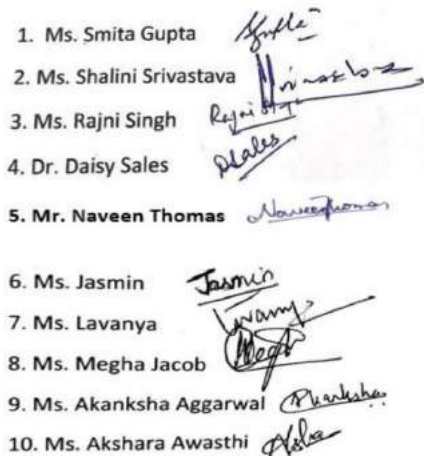 1. Ms. Smita Gupta Gupta
2. Ms. Shalini Srivastava
3. Ms. Rajni Singh Rajni
4. Dr. Daisy Sales DSales
5. Mr. Naveen Thomas NaveenThomas
6. Ms. Jasmin Jasmin
7. Ms. Lavanya
8. Ms. Megha Jacob Megh
9. Ms. Akanksha Aggarwal Akanksha
10. Ms. Akshara Awasthi